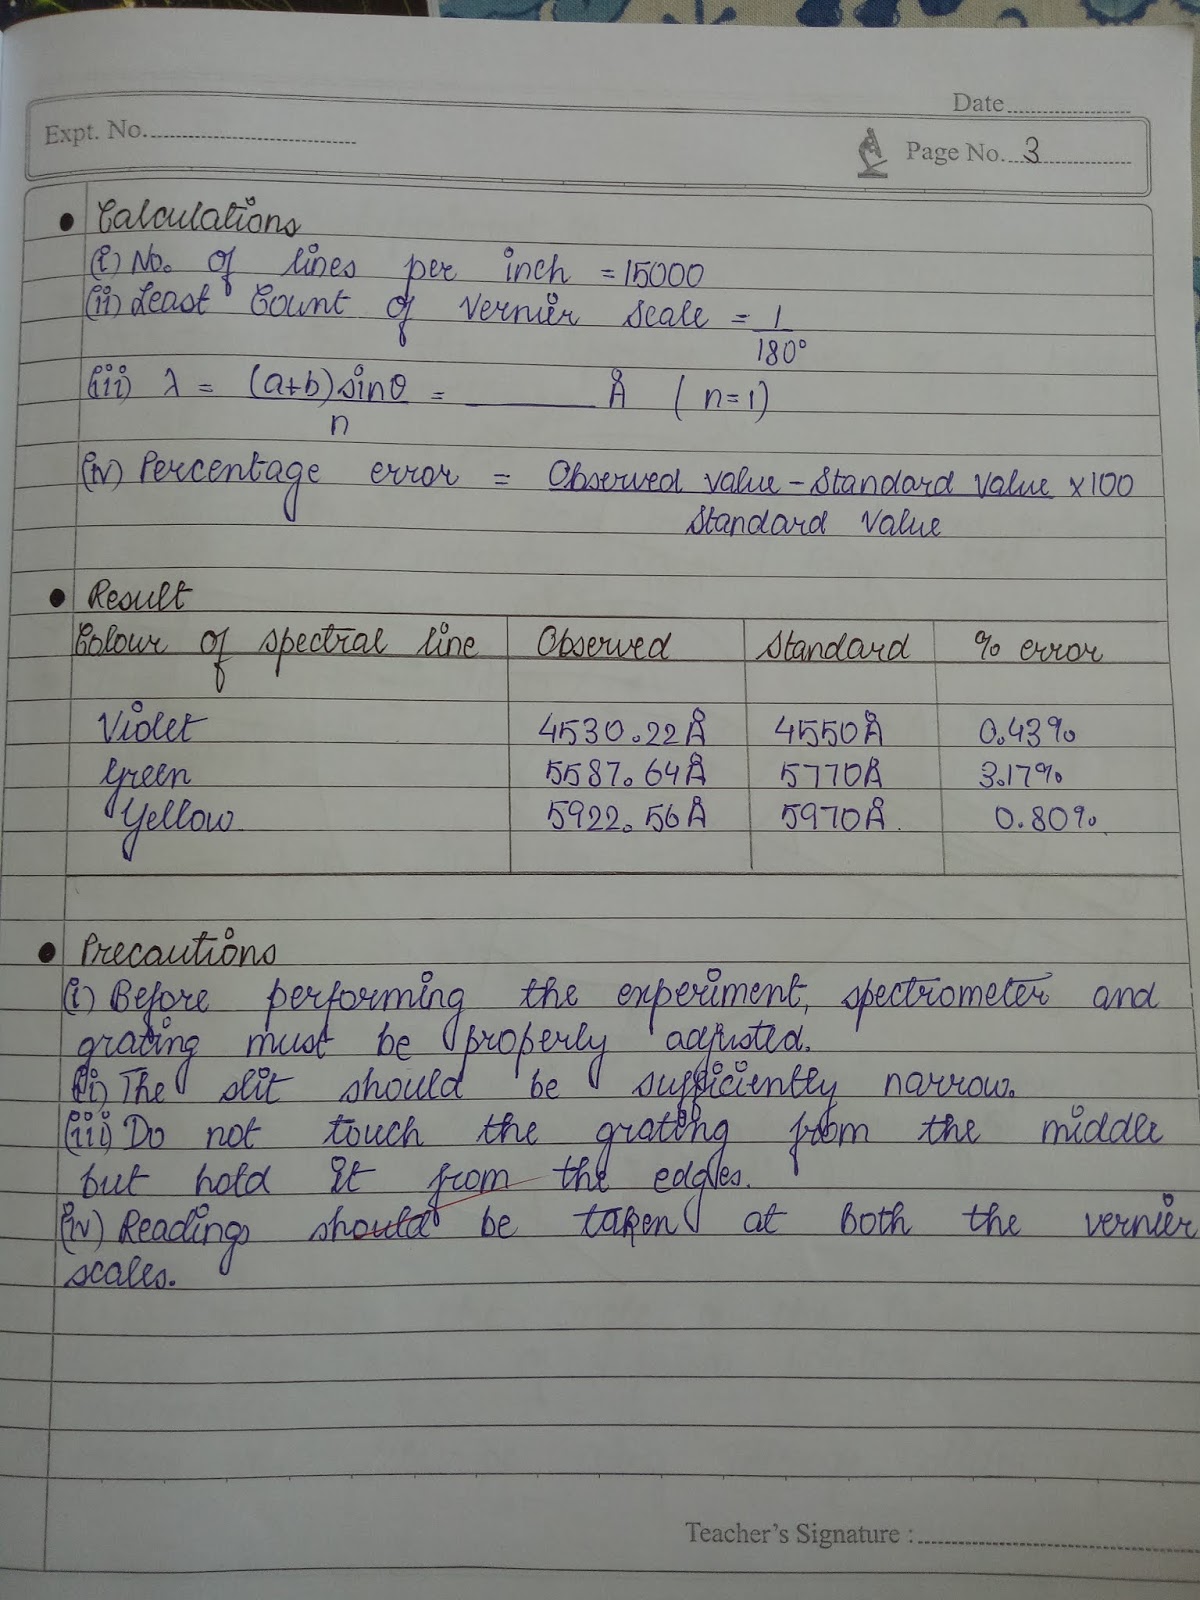 Date
Expt. No.
Page No. 3
• Calculations
(i) No. of lines per inch = 15000
(ii) Least Count of Vernier Scale = 1
180°
(iii) λ = (a+b) sinθ = ______ Å ( n=1)
n
(iv) Percentage error = Observed value - Standard value x100
Standard Value
• Result
Colour of spectral line Observed Standard % error
Violet 4530.22Å 4550Å 0.43%
Green 5587.64Å 5770Å 3.17%
Yellow 5922.56Å 5970Å 0.80%
• Precautions
(i) Before performing the experiment, spectrometer and
grating must be properly adjusted.
(ii) The slit should be sufficiently narrow.
(iii) Do not touch the grating from the middle
but hold it from the edges.
(iv) Readings should be taken at both the vernier
scales.
Teacher's Signature :